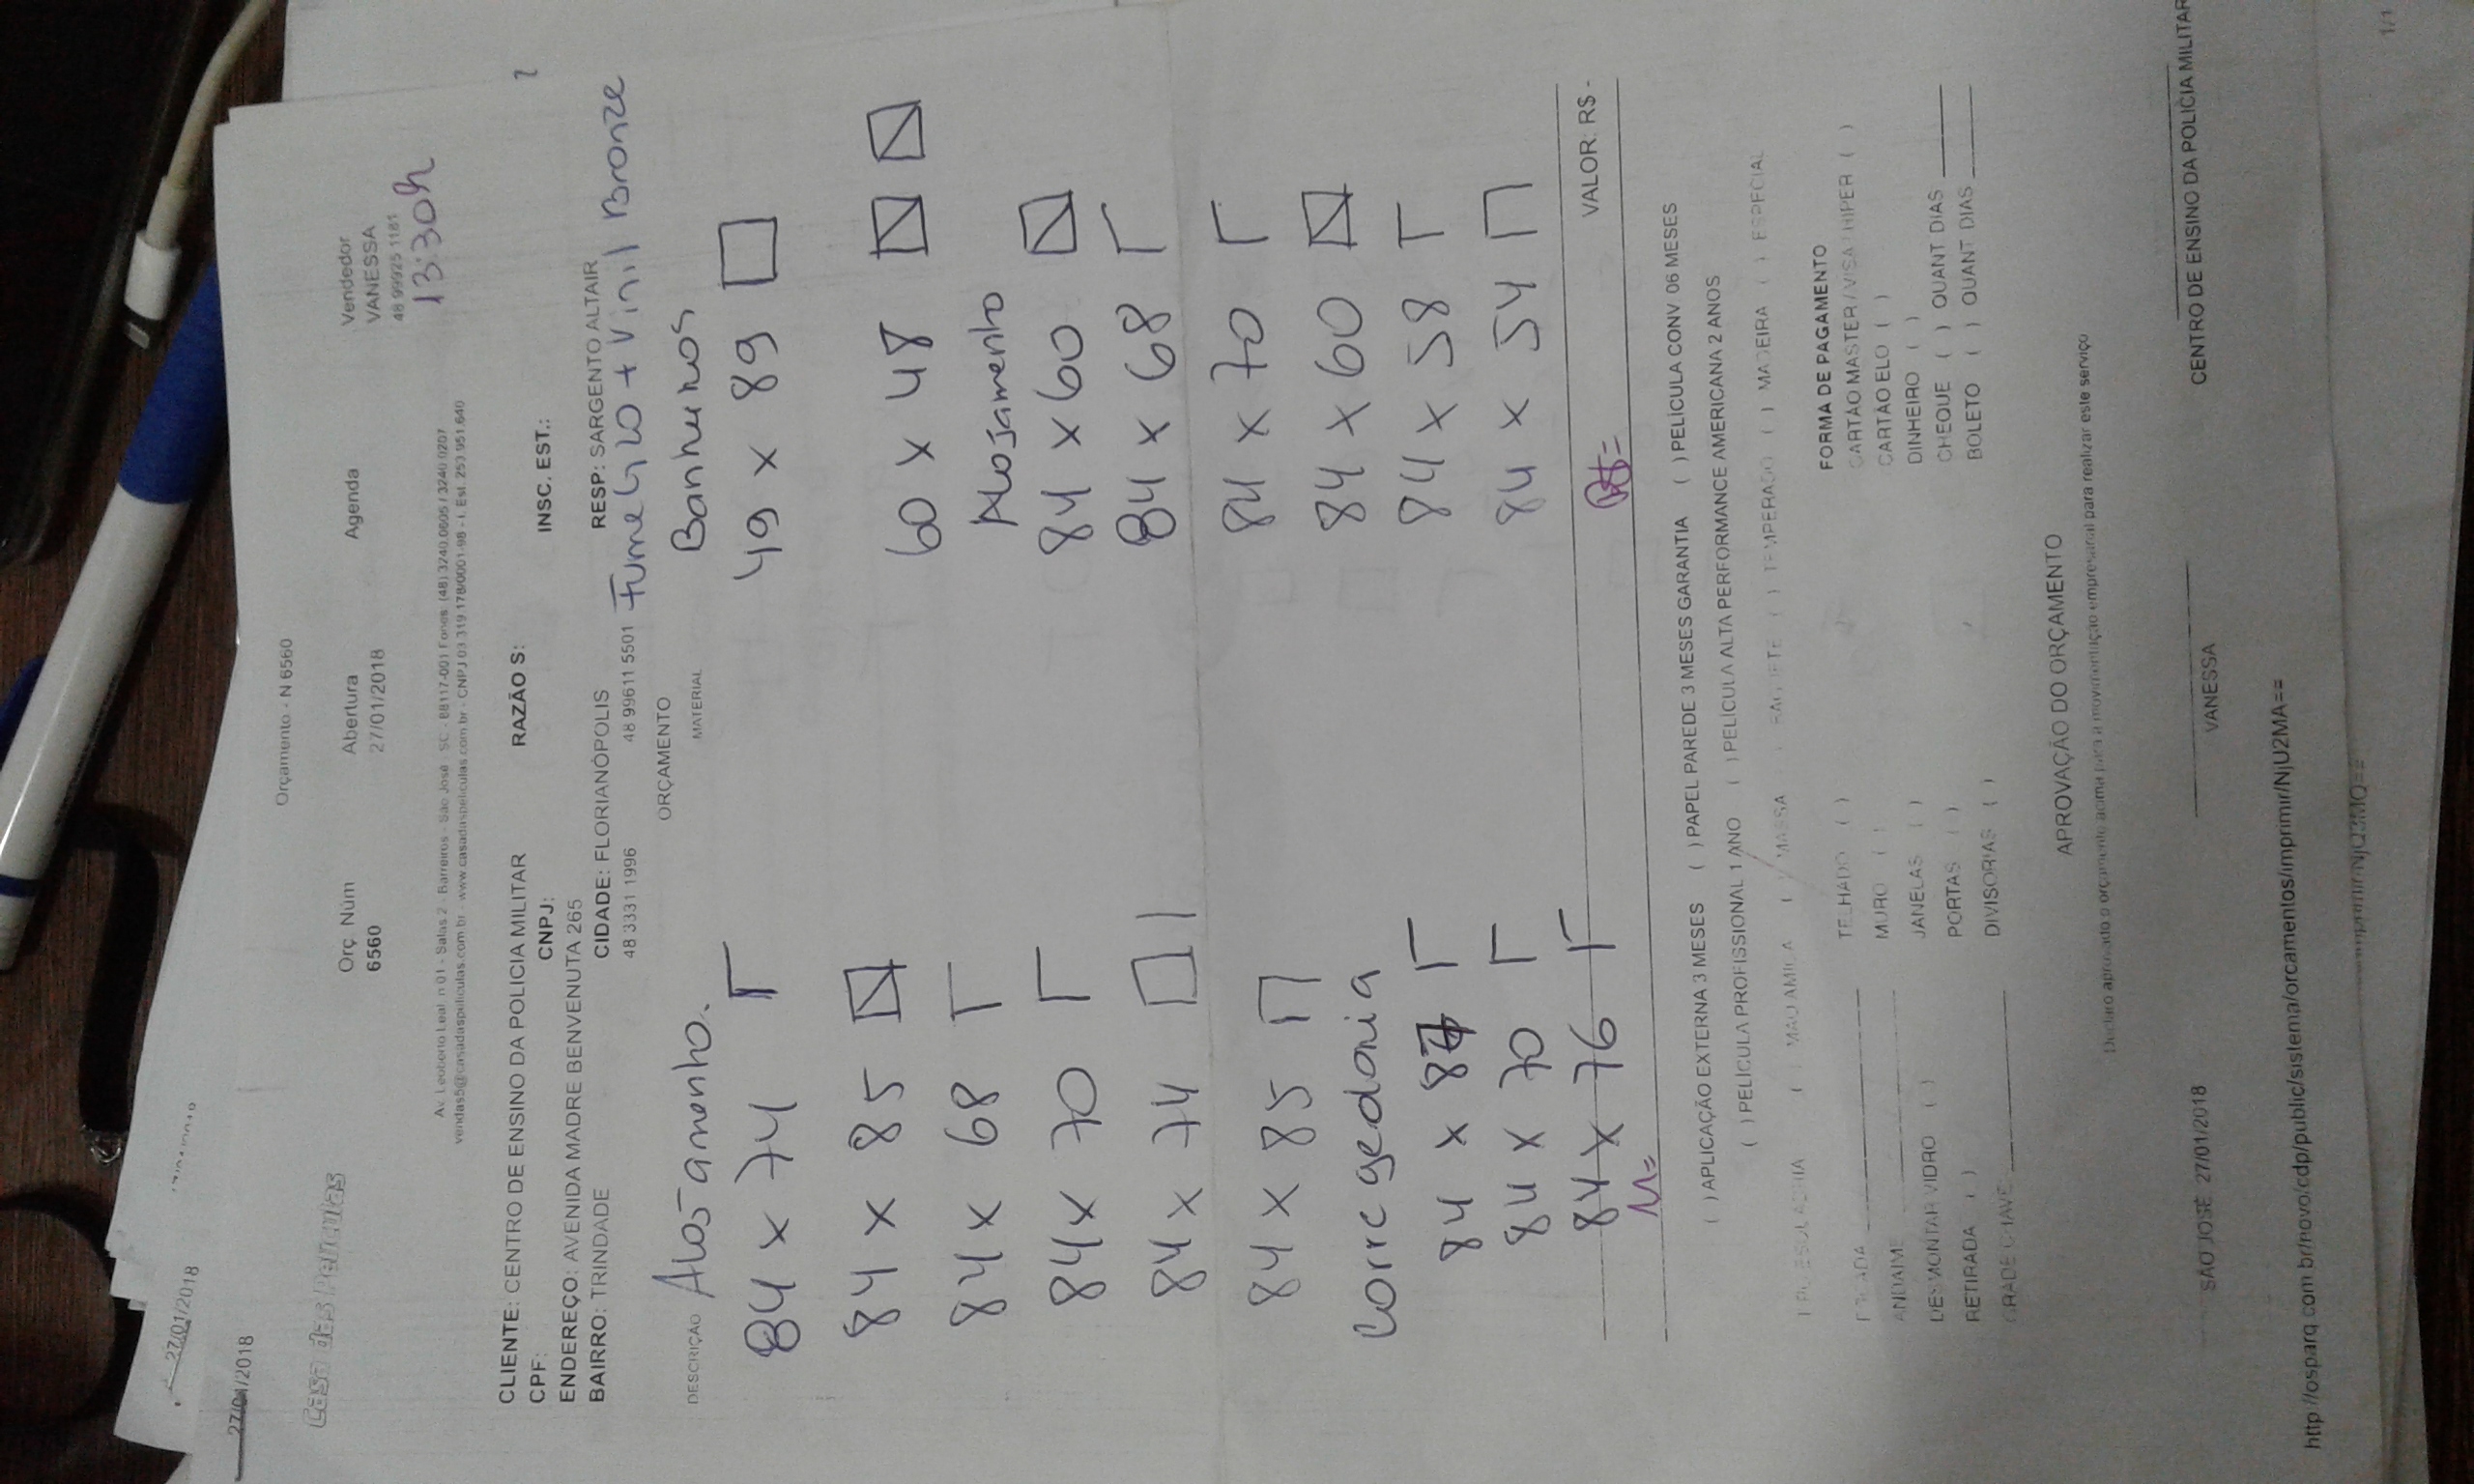 27/01/2018
27/01/2018
Orçamento - N 6560
Casa das Películas
Orç. Núm
6560
Abertura
27/01/2018
Agenda
Vendedor
VANESSA
48 99925 1181
13:30h
Av. Leoberto Leal, n 01 - Salas 2 - Barreiros - São José SC - 88117-001 Fones (48) 3240.0605 / 3240 0207
vendas5@casadaspeliculas.com.br - www.casadaspeliculas.com.br - CNPJ 03 319 178/0001-98 - I. Est. 253.951.640
CLIENTE: CENTRO DE ENSINO DA POLICIA MILITAR RAZÃO S:
CPF: CNPJ: INSC. EST.:
ENDEREÇO: AVENIDA MADRE BENVENUTA 265
BAIRRO: TRINDADE CIDADE: FLORIANÓPOLIS RESP: SARGENTO ALTAIR
48 3331 1996 48 99611 5501 Fume G20 + Vinil Bronze
ORÇAMENTO
DESCRIÇÃO MATERIAL
Alojamento.
84 x 74
84 x 85
84 x 68
84 x 70
84 x 74
84 x 85
Corregedoria
84 x 87
84 x 70
84 x 76
M=
Banheiros
49 x 89
60 x 48
Alojamento
84 x 60
84 x 68
84 x 70
84 x 60
84 x 58
84 x 54
VALOR: R$ -
( ) APLICAÇÃO EXTERNA 3 MESES ( ) PAPEL PAREDE 3 MESES GARANTIA ( ) PELÍCULA CONV 06 MESES
( ) PELICULA PROFISSIONAL 1 ANO ( ) PELÍCULA ALTA PERFORMANCE AMERICANA 2 ANOS
( ) MASSA ( ) TEMPERADO ( ) MADEIRA ( ) ESPECIAL
ANDAIME
DESMONTAR VIDRO ( )
RETIRADA ( )
GRADE CHAVE
TELHADO ( )
MURO ( )
JANELAS ( )
PORTAS ( )
DIVISORIAS ( )
FORMA DE PAGAMENTO
CARTÃO MASTER / VISA / HIPER ( )
CARTÃO ELO ( )
DINHEIRO ( )
CHEQUE ( ) QUANT DIAS
BOLETO ( ) QUANT DIAS
APROVAÇÃO DO ORÇAMENTO
Declaro aprovado o orçamento acima para a movimentação empresarial para realizar este serviço
SÃO JOSÉ 27/01/2018
VANESSA
CENTRO DE ENSINO DA POLICIA MILITAR
http://osparq.com.br/novo/cdp/public/sistema/orcamentos/imprimir/NjU2MA==
1/1